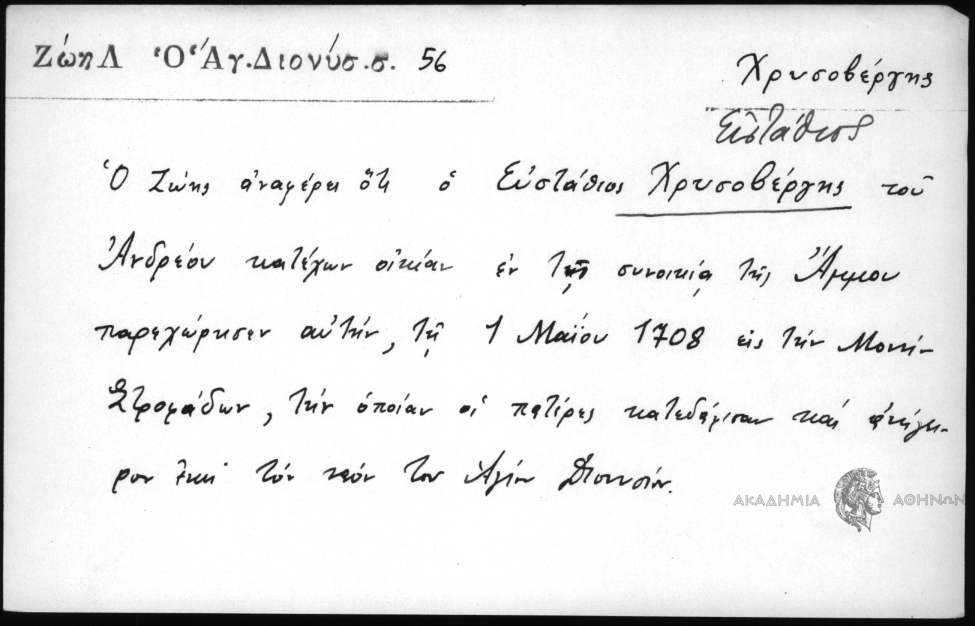 Ζώη Λ Ὁ Ἅγ. Διονύσ. σ. 56
Χρυσοβέργης
Εὐστάθιος
Ὁ Ζώης ἀναφέρει ὅτι ὁ Εὐστάθιος Χρυσοβέργης τοῦ
Ἀνδρέου κατέχων οἰκίαν ἐν τῇ συνοικίᾳ τῆς Ἄμμου
παρεχώρησεν αὐτήν, τῇ 1 Μαΐου 1708 εἰς τήν Μονήν
Στροφάδων, τήν ὁποίαν οἱ πατέρες κατεδάφισαν καί ἀνήγει-
ρον ἐκεῖ τόν ναόν τοῦ Ἁγίου Διονυσίου.
ΑΚΑΔΗΜΙΑ ΑΘΗΝΩΝ